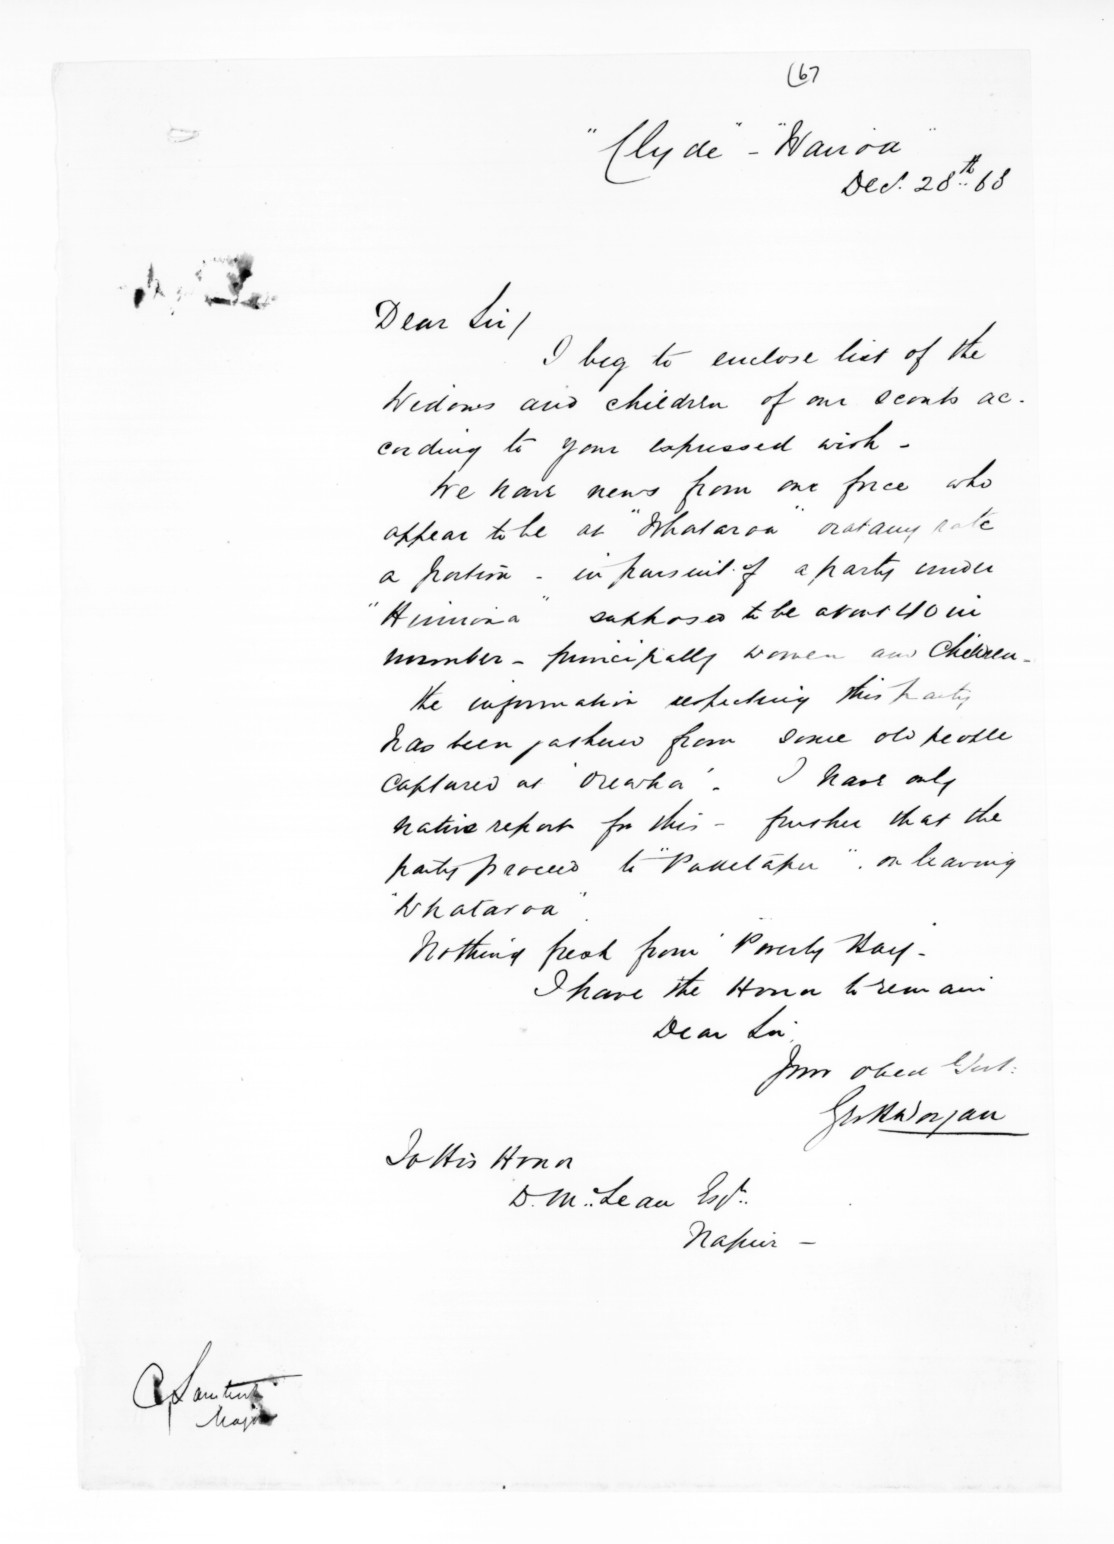 (67
"Clyde" - "Wairoa"
Dec. 28th 68
Dear Sir/
I beg to enclose list of the
Widows and children of our scouts ac-
cording to your expressed wish -
We have news from our force who
appear to be at "Whataroa" or at any rate
a portion - in pursuit of a party under
"Hinriona" supposed to be about 40 in
number - principally women and Children -
the information respecting this party
has been gathered from some old people
captured at 'Orewha'. I have only
native report for this - further that the
party proceed to "Puketapu". on leaving
"Whataroa"
Nothing fresh from "Poverty Bay -
I have the Honor to remain
Dear Sir,
Your obed Servt.
Worgan
To His Honor
D. McLean Esqr.
Napier -
Major